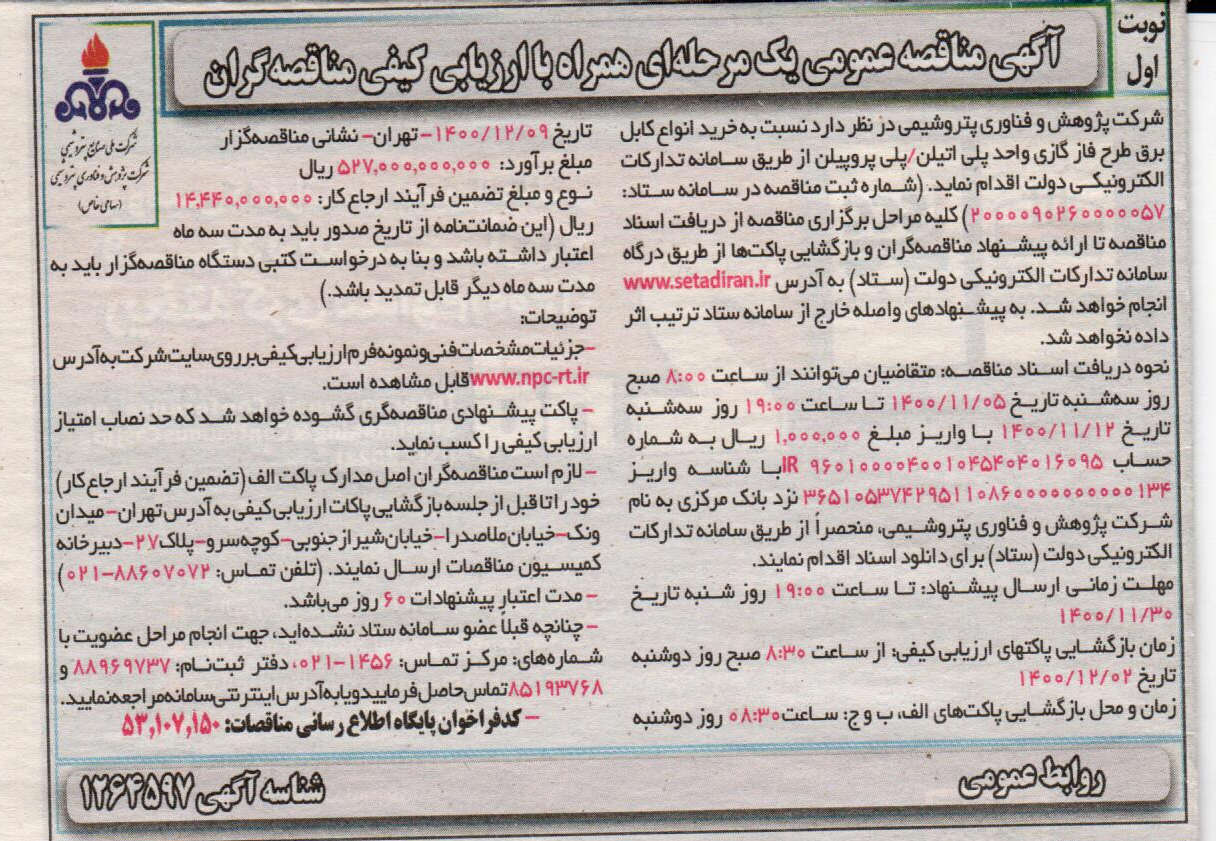 نوبت
اول
آگهی مناقصه عمومی یک مرحله‌ای همراه با ارزیابی کیفی مناقصه‌گران
شرکت ملی صنایع پتروشیمی
شرکت پژوهش و فناوری پتروشیمی
(سهامی خاص)
شرکت پژوهش و فناوری پتروشیمی در نظر دارد نسبت به خرید انواع کابل
برق طرح فاز گازی واحد پلی اتیلن/پلی پروپیلن از طریق سامانه تدارکات
الکترونیکی دولت اقدام نماید. (شماره ثبت مناقصه در سامانه ستاد:
۲۰۰۰۰۹۰۲۶۰۰۰۰۰۵۷) کلیه مراحل برگزاری مناقصه از دریافت اسناد
مناقصه تا ارائه پیشنهاد مناقصه‌گران و بازگشایی پاکت‌ها از طریق درگاه
سامانه تدارکات الکترونیکی دولت (ستاد) به آدرس www.setadiran.ir
انجام خواهد شد. به پیشنهادهای واصله خارج از سامانه ستاد ترتیب اثر
داده نخواهد شد.
نحوه دریافت اسناد مناقصه: متقاضیان می‌توانند از ساعت ۸:۰۰ صبح
روز سه‌شنبه تاریخ ۱۴۰۰/۱۱/۰۵ تا ساعت ۱۹:۰۰ روز سه‌شنبه
تاریخ ۱۴۰۰/۱۱/۱۲ با واریز مبلغ ۱,۰۰۰,۰۰۰ ریال به شماره
حساب IR ۹۶۰۱۰۰۰۰۴۰۰۱۰۴۵۴۰۴۰۱۶۰۹۵ با شناسه واریز
۳۶۵۱۰۵۳۷۴۲۹۵۱۱۰۸۶۰۰۰۰۰۰۰۰۰۰۱۳۴ نزد بانک مرکزی به نام
شرکت پژوهش و فناوری پتروشیمی، منحصراً از طریق سامانه تدارکات
الکترونیکی دولت (ستاد) برای دانلود اسناد اقدام نمایند.
مهلت زمانی ارسال پیشنهاد: تا ساعت ۱۹:۰۰ روز شنبه تاریخ
۱۴۰۰/۱۱/۳۰
زمان بازگشایی پاکتهای ارزیابی کیفی: از ساعت ۸:۳۰ صبح روز دوشنبه
تاریخ ۱۴۰۰/۱۲/۰۲
زمان و محل بازگشایی پاکت‌های الف، ب و ج: ساعت ۰۸:۳۰ روز دوشنبه
تاریخ ۱۴۰۰/۱۲/۰۹–تهران– نشانی مناقصه‌گزار
مبلغ برآورد: ۵۲۷,۰۰۰,۰۰۰,۰۰۰ ریال
نوع و مبلغ تضمین فرآیند ارجاع کار: ۱۴,۴۴۰,۰۰۰,۰۰۰
ریال (این ضمانت‌نامه از تاریخ صدور باید به مدت سه ماه
اعتبار داشته باشد و بنا به درخواست کتبی دستگاه مناقصه‌گزار باید به
مدت سه ماه دیگر قابل تمدید باشد.)
توضیحات:
–جزئیات مشخصات فنی و نمونه فرم ارزیابی کیفی بر روی سایت شرکت به آدرس
www.npc-rt.ir قابل مشاهده است.
– پاکت پیشنهادی مناقصه‌گری گشوده خواهد شد که حد نصاب امتیاز
ارزیابی کیفی را کسب نماید.
– لازم است مناقصه‌گران اصل مدارک پاکت الف (تضمین فرآیند ارجاع کار)
خود را تا قبل از جلسه بازگشایی پاکات ارزیابی کیفی به آدرس تهران–میدان
ونک–خیابان ملاصدرا–خیابان شیراز جنوبی–کوچه سرو–پلاک ۲۷–دبیرخانه
کمیسیون مناقصات ارسال نمایند. (تلفن تماس: ۸۸۶۰۷۰۷۲–۰۲۱)
– مدت اعتبار پیشنهادات ۶۰ روز می‌باشد.
– چنانچه قبلاً عضو سامانه ستاد نشده‌اید، جهت انجام مراحل عضویت با
شماره‌های: مرکز تماس: ۱۴۵۶–۰۲۱، دفتر ثبت‌نام: ۸۸۹۶۹۷۳۷ و
۸۵۱۹۳۷۶۸ تماس حاصل فرمایید و یا به آدرس اینترنتی سامانه مراجعه نمایید.
– کد فراخوان پایگاه اطلاع رسانی مناقصات: ۵۳,۱۰۷,۱۵۰
روابط عمومی
شناسه آگهی ۱۲۶۴۵۹۷